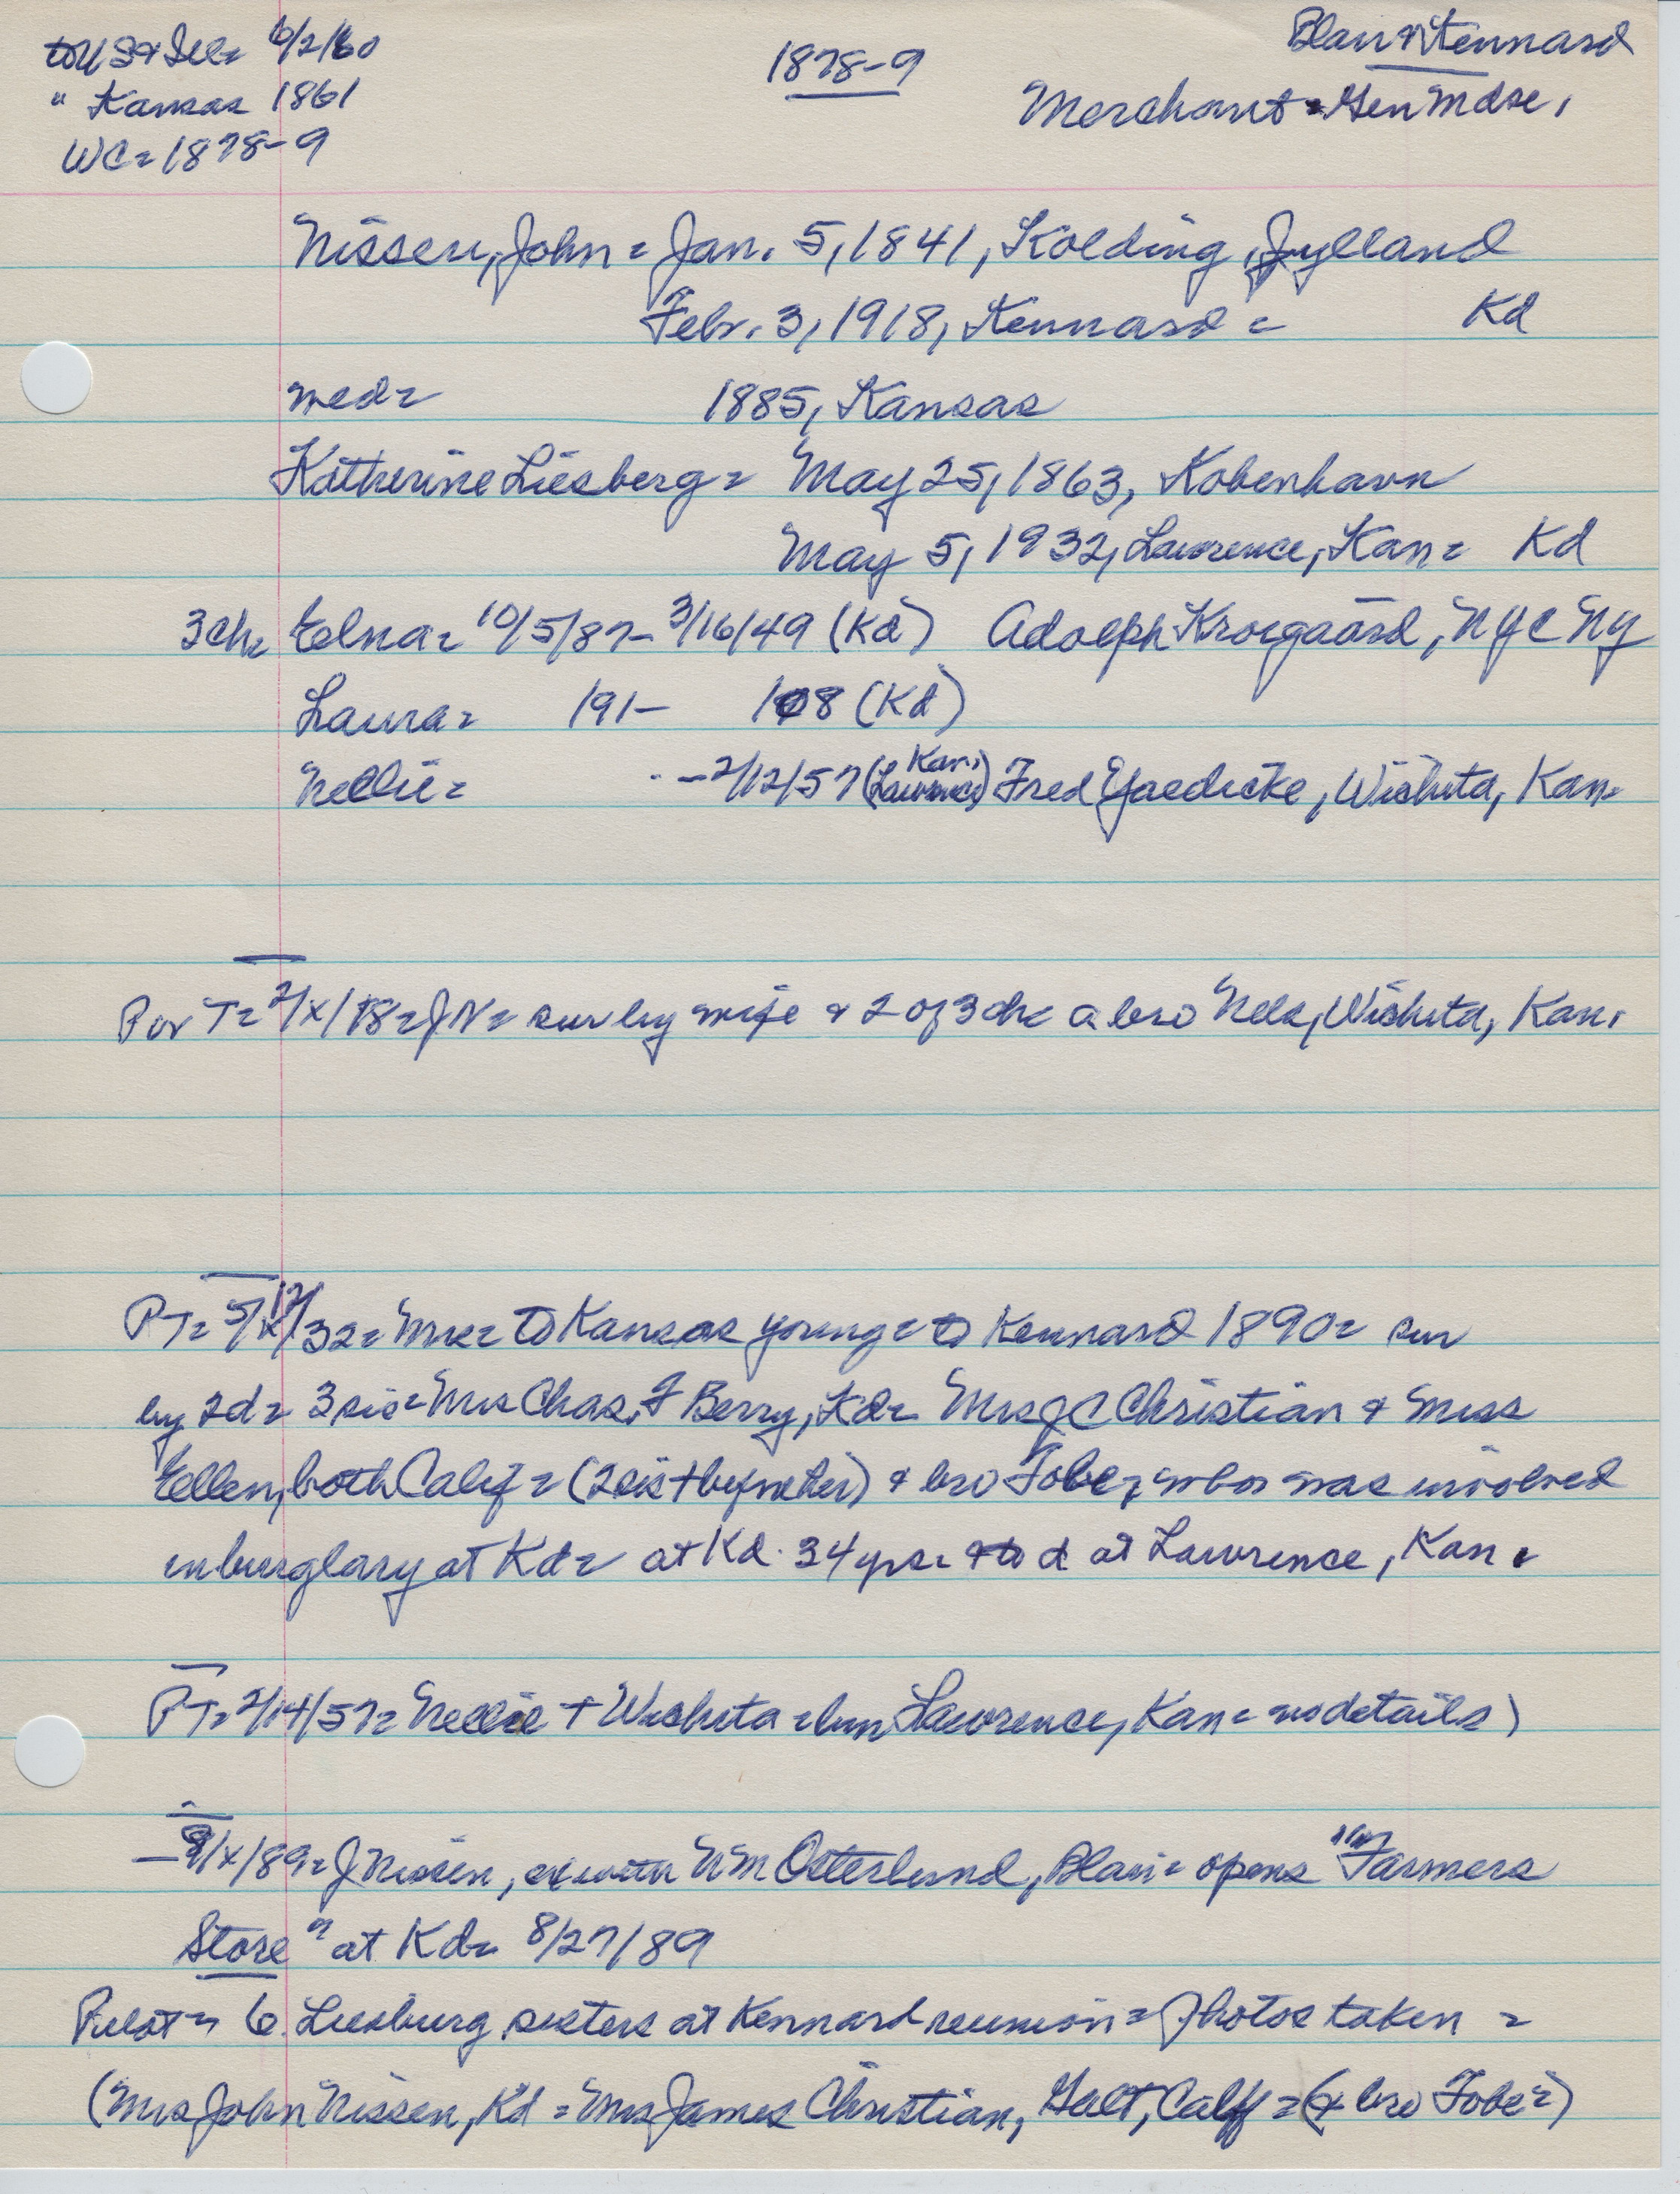 to U S & Ill= 6/2/60
" Kansas 1861
WC= 1878-9
1878-9
Blair & Kennard
Merchant = Gen Mdse,
Nissen, John = Jan. 5, 1841, Kolding, Jylland
Febr. 3, 1918, Kennard = Kd
med= 1885, Kansas
Katherine Liesberg = May 25, 1863, Kobenhavn
May 5, 1932, Lawrence, Kan= Kd
3ch= Edna= 10/5/87- 3/16/49 (Kd) Adolph Krogaard, NYC NY
Laura= 191- 108 (Kd)
Nellie= -2/12/57 (Lawrence Kan.) Fred Gaedicke, Wichita, Kan=
Por T= 2/x/18= JN= sur by wife & 2 of 3 ch= a bro Nels, Wichita, Kan.
PT= 5/12/32= Mrs= to Kansas young= to Kennard 1890= sur
by 2d= 3 sis= Mrs Chas. F Berry, Kd= Mrs J C Christian & Miss
Ellen, both Calif= (2 sis + before her) & bro Tobe, who was involved
in burglary at Kd= at Kd. 34 yrs= d at Lawrence, Kan.
PT= 2/14/57= Nellie + Wichita = bur Lawrence, Kan= no details)
-9/x/89= J Nissen, ex with Wm Osterlund, Blair= opens "Farmers
Store" at Kd= 8/27/89
6. Liesburg sisters at Kennard reunion = Photos taken =
(Mrs John Nissen, Kd = Mrs James Christian, Galt, Calif = (& bro Tobe=)